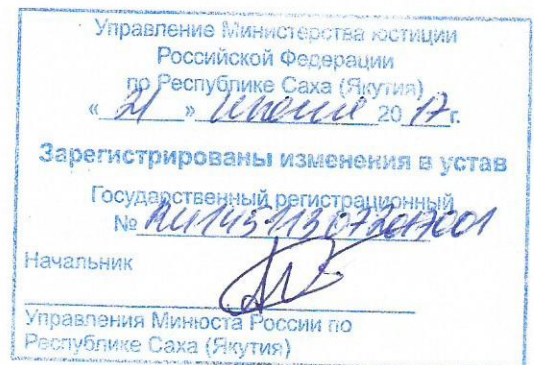 Управление Министерства юстиции
Российской Федерации
по Республике Саха (Якутия)
« 21 » 20 17 г.
Зарегистрированы изменения в устав
Государственный регистрационный
№ RU145113072017001
Начальник
Управления Минюста России по
Республике Саха (Якутия)